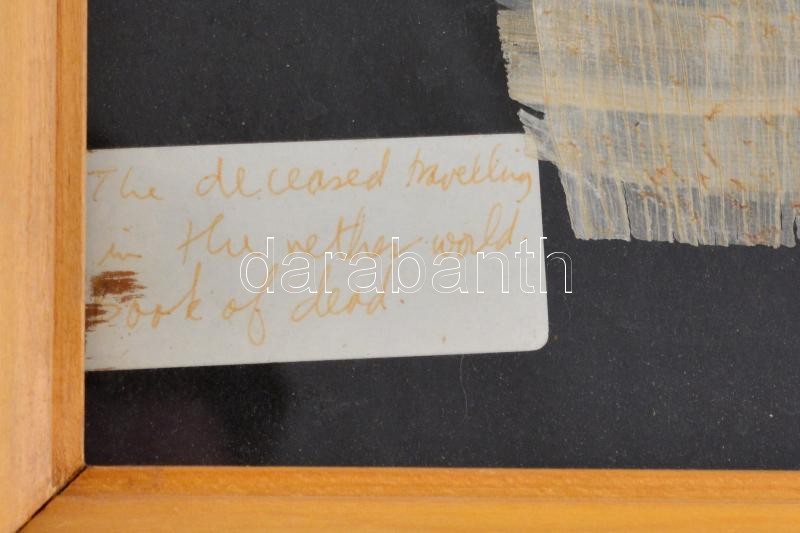 The deceased travelling
in the nether world
Book of dead.
darabanth